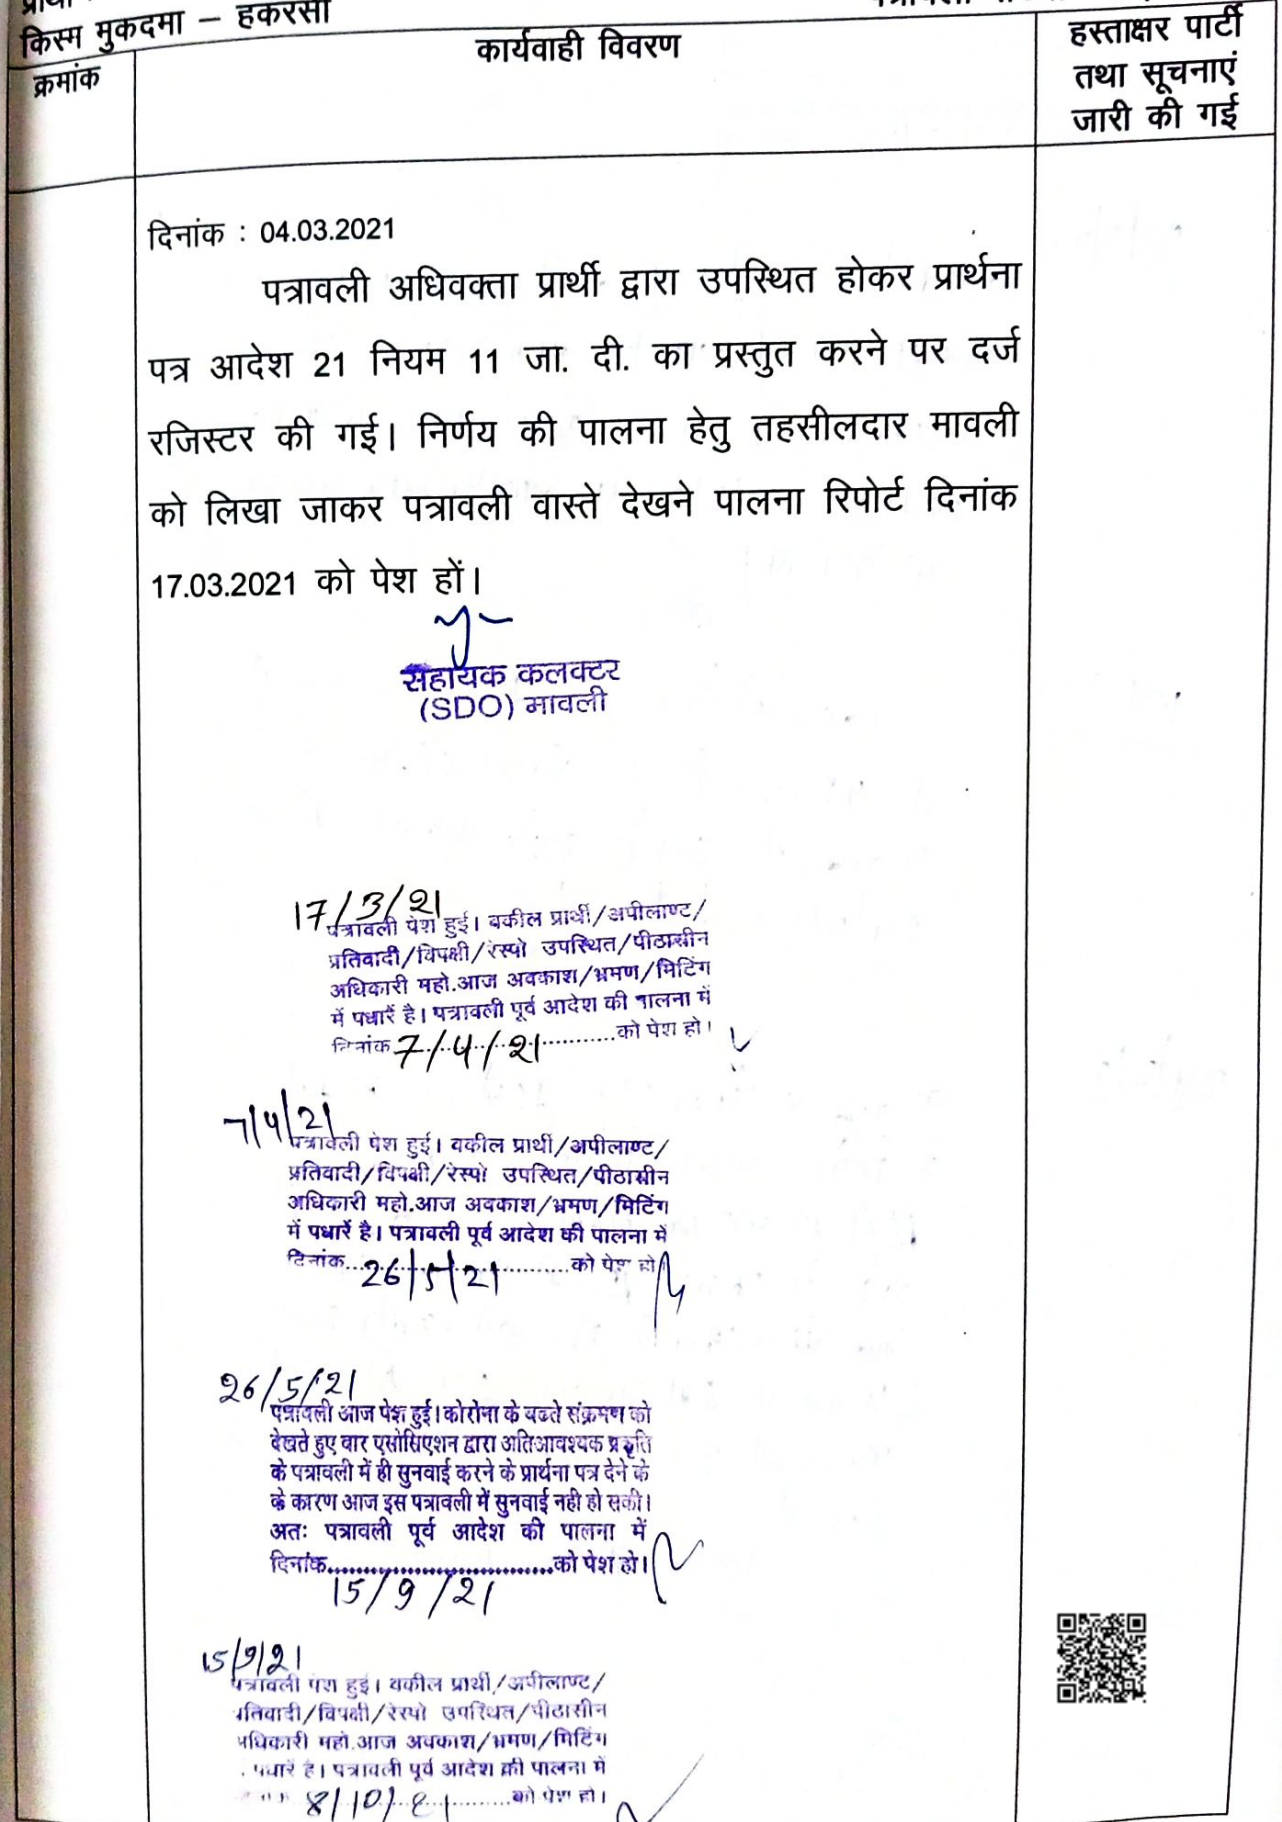 किस्म मुकदमा – हकरसी
क्रमांक
कार्यवाही विवरण
हस्ताक्षर पार्टी
तथा सूचनाएं
जारी की गई
दिनांक : 04.03.2021
पत्रावली अधिवक्ता प्रार्थी द्वारा उपस्थित होकर प्रार्थना
पत्र आदेश 21 नियम 11 जा. दी. का प्रस्तुत करने पर दर्ज
रजिस्टर की गई। निर्णय की पालना हेतु तहसीलदार मावली
को लिखा जाकर पत्रावली वास्ते देखने पालना रिपोर्ट दिनांक
17.03.2021 को पेश हों।
सहायक कलक्टर
(SDO) मावली
17/3/21
पत्रावली पेश हुई। वकील प्रार्थी/अपीलाण्ट/
प्रतिवादी/विपक्षी/रेस्पो उपस्थित/पीठासीन
अधिकारी महो.आज अवकाश/भ्रमण/मिटिंग
में पधारें है। पत्रावली पूर्व आदेश की पालना में
दिनांक 7/4/21 ............को पेश हो।
7/4/21
पत्रावली पेश हुई। वकील प्रार्थी/अपीलाण्ट/
प्रतिवादी/विपक्षी/रेस्पो उपस्थित/पीठासीन
अधिकारी महो.आज अवकाश/भ्रमण/मिटिंग
में पधारें है। पत्रावली पूर्व आदेश की पालना में
दिनांक... 26/5/21 ............को पेश हो
26/5/21
पत्रावली आज पेश हुई। कोरोना के बढते संक्रमण को
देखते हुए बार एसोसिएशन द्वारा अतिआवश्यक प्रकृति
के पत्रावली में ही सुनवाई करने के प्रार्थना पत्र देने के
के कारण आज इस पत्रावली में सुनवाई नही हो सकी।
अतः पत्रावली पूर्व आदेश की पालना में
दिनांक....................................को पेश हो।
15/9/21
15/9/21
पत्रावली पेश हुई। वकील प्रार्थी/अपीलाण्ट/
प्रतिवादी/विपक्षी/रेस्पो उपस्थित/पीठासीन
अधिकारी महो.आज अवकाश/भ्रमण/मिटिंग
पधारें है। पत्रावली पूर्व आदेश की पालना में
8/10/21 ............को पेश हो।